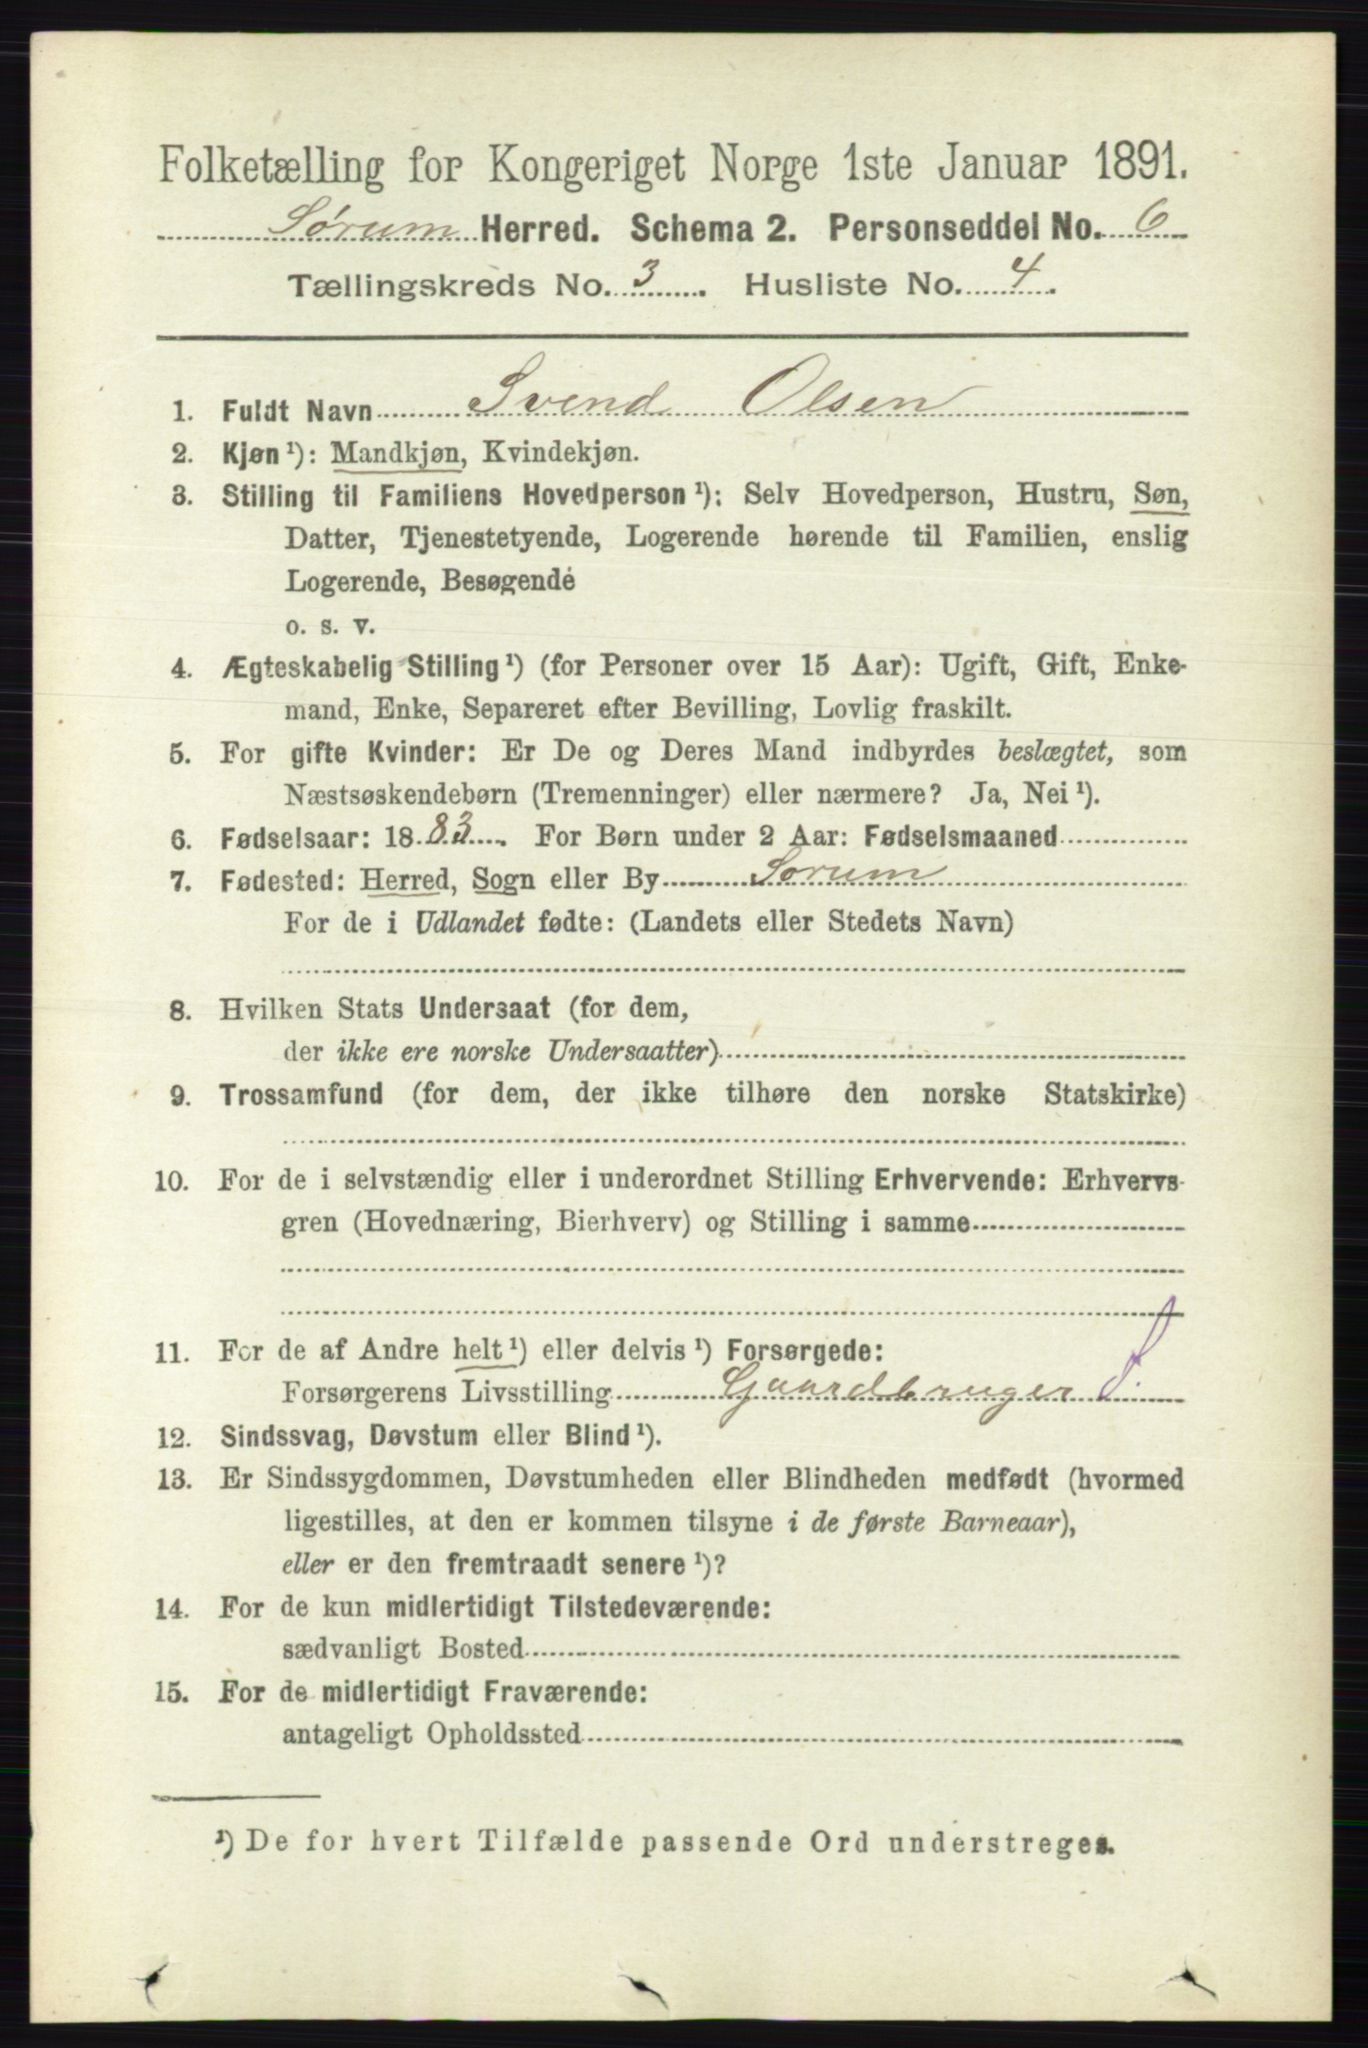 Folketælling for Kongeriget Norge 1ste Januar 1891.
Sørum Herred. Schema 2. Personseddel No. 6
Tællingskreds No. 3. Husliste No. 4.
1. Fuldt Navn Svend Olsen
2. Kjøn ¹): Mandkjøn, Kvindekjøn.
3. Stilling til Familiens Hovedperson ¹): Selv Hovedperson, Hustru, Søn,
Datter, Tjenestetyende, Logerende hørende til Familien, enslig
Logerende, Besøgende
o. s. v.
4. Ægteskabelig Stilling ¹) (for Personer over 15 Aar): Ugift, Gift, Enke-
mand, Enke, Separeret efter Bevilling, Lovlig fraskilt.
5. For gifte Kvinder: Er De og Deres Mand indbyrdes beslægtet, som
Næstsøskendebørn (Tremenninger) eller nærmere? Ja, Nei ¹).
6. Fødselsaar: 1883. For Børn under 2 Aar: Fødselsmaaned
7. Fødested: Herred, Sogn eller By Sorum
For de i Udlandet fødte: (Landets eller Stedets Navn)
8. Hvilken Stats Undersaat (for dem,
der ikke ere norske Undersaatter)
9. Trossamfund (for dem, der ikke tilhøre den norske Statskirke)
10. For de i selvstændig eller i underordnet Stilling Erhvervende: Erhvervs-
gren (Hovednæring, Bierhverv) og Stilling i samme
11. For de af Andre helt ¹) eller delvis ¹) Forsørgede:
Forsørgerens Livsstilling Gaardbruger S.
12. Sindssvag, Døvstum eller Blind ¹).
13. Er Sindssygdommen, Døvstumheden eller Blindheden medfødt (hvormed
ligestilles, at den er kommen tilsyne i de første Barneaar),
eller er den fremtraadt senere ¹)?
14. For de kun midlertidigt Tilstedeværende:
sædvanligt Bosted
15. For de midlertidigt Fraværende:
antageligt Opholdssted
¹) De for hvert Tilfælde passende Ord understreges.